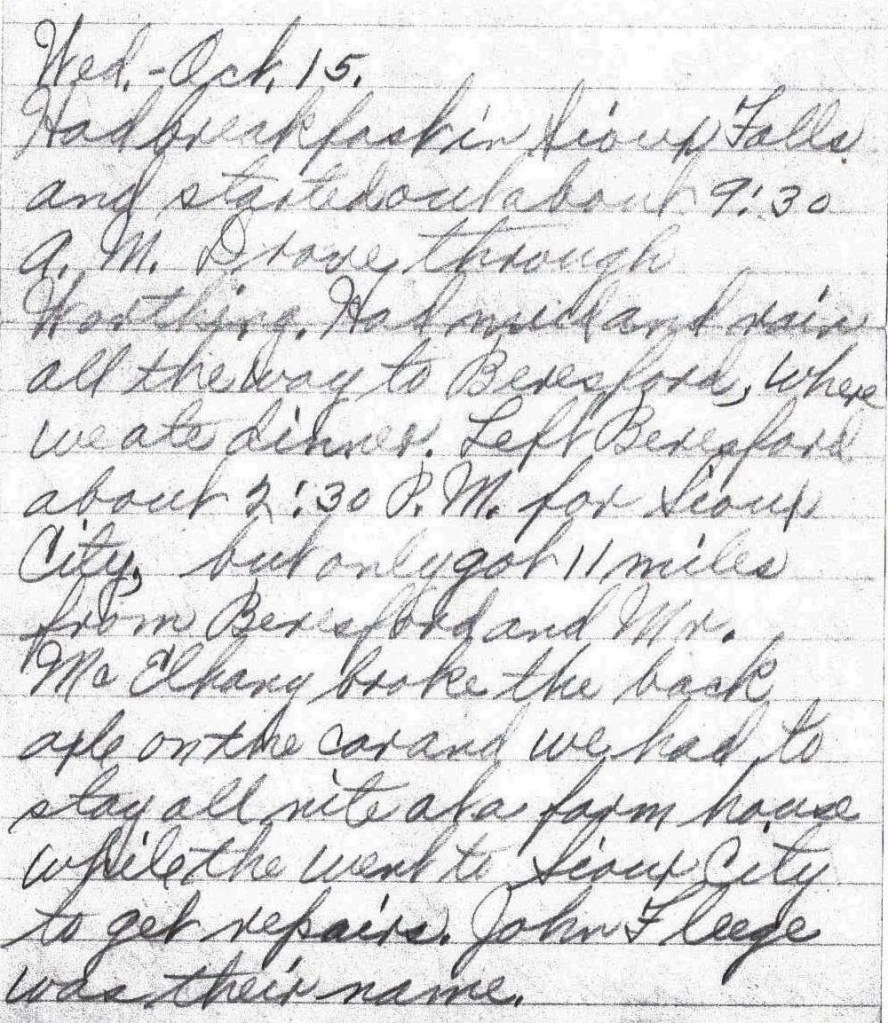 Wed.-Oct. 15.
Had breakfast in Sioux Falls
and started out about 9:30
A. M. Drove through
Worthing. Had mud and rain
all the way to Beresford, where
we ate dinner. Left Beresford
about 2:30 P. M. for Sioux
City, but only got 11 miles
from Beresford and Mr.
Mc Elhany broke the back
axle on the car and we had to
stay all nite at a farm house
while the went to Sioux City
to get repairs. John Fleege
was their name.